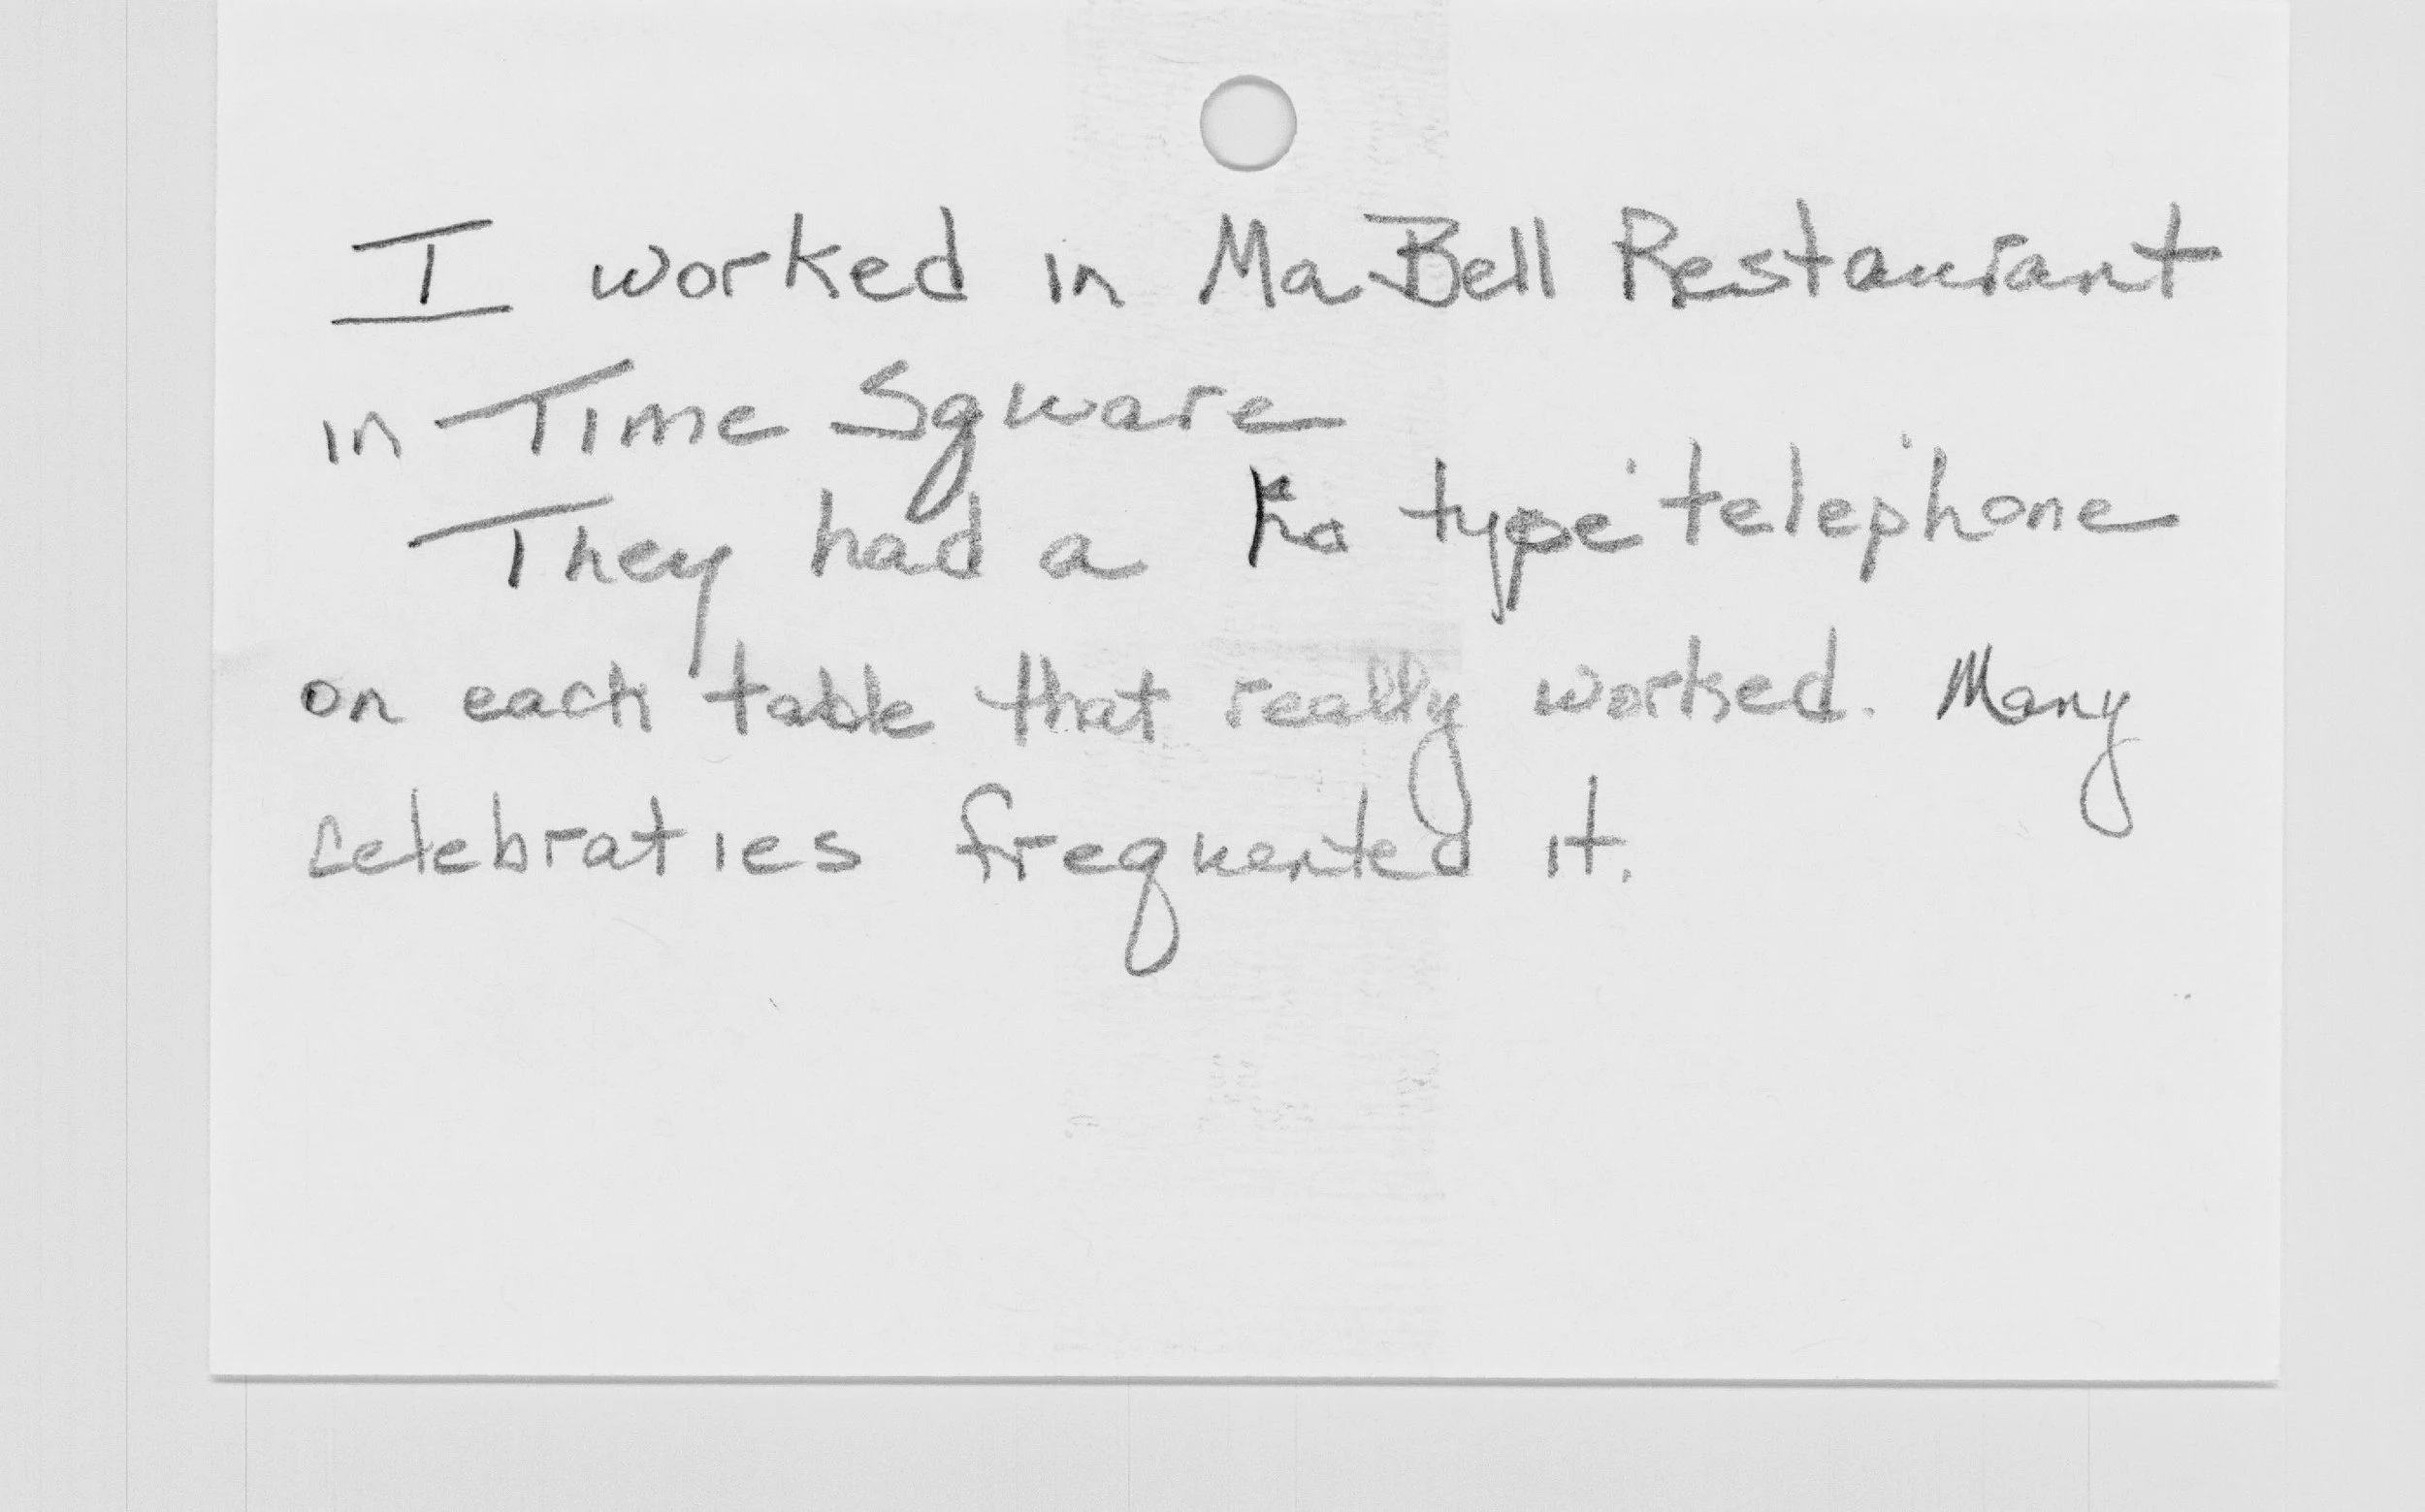 I worked in Ma Bell Restaurant
in Time Square
They had a type telephone
on each table that really worked. Many
celebraties frequented it.